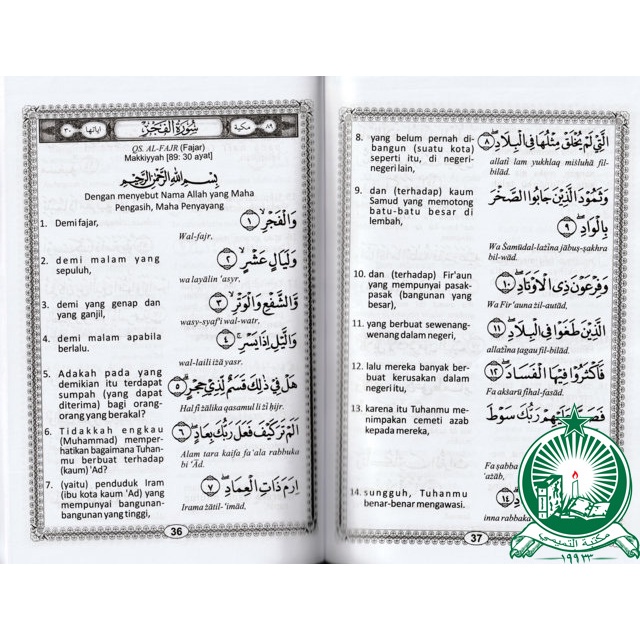 ٣٠ اياتها
سُورَةُ الْفَجْرِ
مكية ٨٩
QS. AL-FAJR (Fajar)
Makkiyyah [89: 30 ayat]
بِسْمِ اللهِ الرَّحْمٰنِ الرَّحِيْمِ
Dengan menyebut Nama Allah yang Maha
Pengasih, Maha Penyayang
1. Demi fajar,
وَالْفَجْرِۙ ١
Wal-fajr,
2. demi malam yang
sepuluh,
وَلَيَالٍ عَشْرٍۙ ٢
wa layālin ‘asyr,
3. demi yang genap dan
yang ganjil,
وَّالشَّفْعِ وَالْوَتْرِۙ ٣
wasy-syaf‘i wal-watr,
4. demi malam apabila
berlalu.
وَالَّيْلِ اِذَا يَسْرِۚ ٤
wal-laili iżā yasr.
5. Adakah pada yang
demikian itu terdapat
sumpah (yang dapat
diterima) bagi orang-
orang yang berakal?
هَلْ فِيْ ذٰلِكَ قَسَمٌ لِّذِيْ حِجْرٍۗ ٥
Hal fī żālika qasamul li żī ḥijr.
6. Tidakkah engkau
(Muhammad) memper-
hatikan bagaimana Tuhan-
mu berbuat terhadap
(kaum) ‘Ad?
اَلَمْ تَرَ كَيْفَ فَعَلَ رَبُّكَ بِعَادٍۖ ٦
Alam tara kaifa fa‘ala rabbuka
bi ‘Ād.
7. (yaitu) penduduk Iram
(ibu kota kaum ‘Ad) yang
mempunyai bangunan-
bangunan yang tinggi,
اِرَمَ ذَاتِ الْعِمَادِۖ ٧
Irama żātil-‘imād,
36
8. yang belum pernah di-
bangun (suatu kota)
seperti itu, di negeri-
negeri lain,
الَّتِيْ لَمْ يُخْلَقْ مِثْلُهَا فِى الْبِلَادِۖ ٨
allatī lam yukhlaq miśluhā fil-
bilād.
9. dan (terhadap) kaum
Samud yang memotong
batu-batu besar di
lembah,
وَثَمُوْدَ الَّذِيْنَ جَابُوا الصَّخْرَ
بِالْوَادِۖ ٩
Wa Śamūdal-lażīna jābuṣ-ṣakhra
bil-wād.
10. dan (terhadap) Fir‘aun
yang mempunyai pasak-
pasak (bangunan yang
besar),
وَفِرْعَوْنَ ذِى الْاَوْتَادِۖ ١٠
Wa Fir‘auna żil-autād,
11. yang berbuat sewenang-
wenang dalam negeri,
الَّذِيْنَ طَغَوْا فِى الْبِلَادِۖ ١١
allażīna ṭagau fil-bilād.
12. lalu mereka banyak ber-
buat kerusakan dalam
negeri itu,
فَاَكْثَرُوْا فِيْهَا الْفَسَادَۖ ١٢
Fa akśarū fīhal-fasād.
13. karena itu Tuhanmu me-
nimpakan cemeti azab
kepada mereka,
رَبُّكَ سَوْطَ
Fa ṣabba
‘ażāb,
14. sungguh, Tuhanmu
benar-benar mengawasi.
١٤
inna rabbaka
37
مكتبة التميمي
١٩٩٣